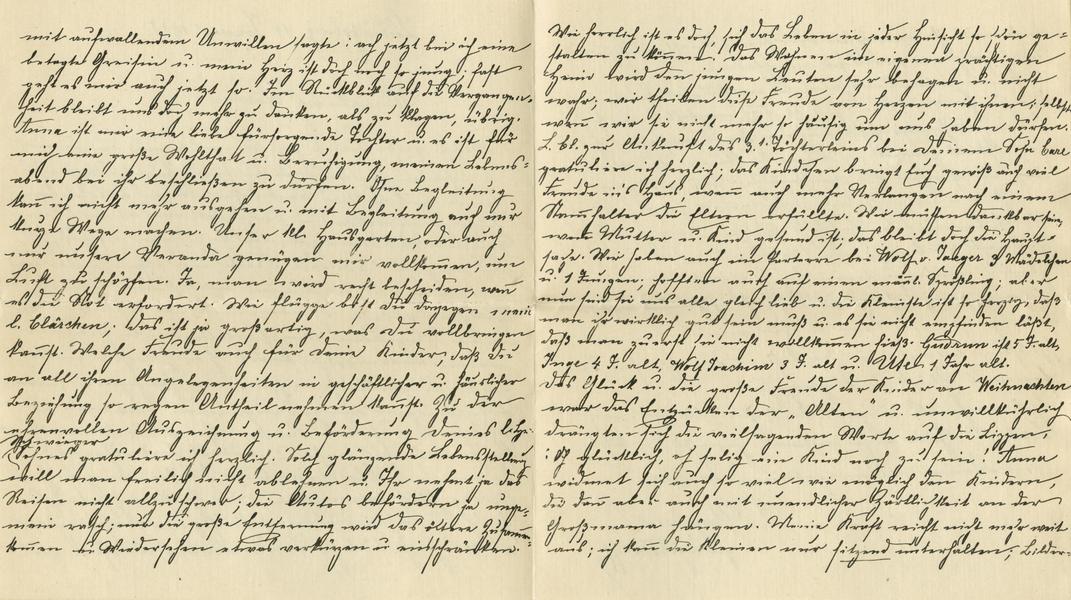 mit aufwallendem Unwillen sagte: ach jetzt bin ich eine
betagte Greisin u. mein Herz ist doch noch so jung; fast
geht es mir auch jetzt so. Im Rückblick auf die Vergangen-
heit bleibt uns doch mehr zu danken, als zu klagen, übrig.
Anna ist mir eine liebe fürsorgende Tochter u. es ist für
mich eine große Wohlthat u. Beruhigung, meinen Lebens-
abend bei ihr beschließen zu dürfen. Ohne Begleitung
kann ich nicht mehr ausgehen u. mit Begleitung auch nur
kurze Wege machen. Unser kl. Hausgarten, oder auch
nur unsere Veranda genügen mir vollkommen, um
Luft zu schöpfen. Ja, man wird recht bescheiden, wenn
es die Not erfordert. Wie flügge bist Du dagegen mein
l. Clärchen; das ist ja großartig, was Du vollbringen
kannst. Welche Freude auch für Deine Kinder, daß Du
an all ihren Angelegenheiten in geschäftlicher u. häuslicher
Beziehung so regen Antheil nehmen kannst. Zu der
ehrenvollen Auszeichnung u. Beförderung Deines
Schwieger
Sohnes gratuliere ich herzlich. Solch glänzende Lebensstellung
will man freilich nicht ablehnen u. Ihr nehmt ja das
Reisen nicht allzu schwer; die Autos befördern ja unge-
mein rasch; nur die große Entfernung wird das öftere Zusamen-
kommen u. Wiedersehen etwas verkürzen u. einschränken.
Wie herrlich ist es doch, sich das Leben in jeder Hinsicht so schön ge-
stalten zu können. Das Wohnen im eigenen prächtigen
Heim wird den jungen Leuten sehr behagen u. nicht
wahr; wir theilen diese Freude von Herzen mit ihnen; selbst
wenn wir sie nicht mehr so häufig um uns haben dürfen.
L. Cl. zur Ankunft des 3.t Töchterleins bei Deinem Sohn Carl
gratuliere ich herzlich; das Kindchen bringt Euch gewiß auch viel
Freude in's Haus, wenn auch mehr Verlangen nach einem
Stammhalter die Eltern erfüllte. Wir müssen dankbar sein,
wenn Mutter u. Kind gesund ist; das bleibt doch die Haupt-
sache. Wir haben auch im Parterre bei Wolf v. Jaeger 3 Mädelchen
u. 1 Jungen; hofften auch auf einen männl. Sprößling; aber
nun sind sie uns alle gleich lieb u. die Kleinste ist so herzig, daß
man ihr wirklich gut sein muß u. es sie nicht empfinden läßt,
daß man zuerst sie nicht willkommen hieß. Gudrun ist 5 J. alt,
Inge 4 J. alt, Wolf Joachim 3 J. alt u. Ute 1 Jahr alt.
Das Glück u. die große Freude der Kinder an Weihnachten
war das Entzücken der „Alten“ u. unwillkührlich
drängten sich die vielsagenden Worte auf die Lippen,
: O glücklich, o selig ein Kind noch zu sein! Anna
widmet sich auch so viel wie möglich den Kindern,
die dann aber auch mit unendlicher Zärtlichkeit an der
Großmama hängen. Meine Kraft reicht nicht mehr weit
aus; ich kann die Kleinen nur sitzend unterhalten; Bilder-